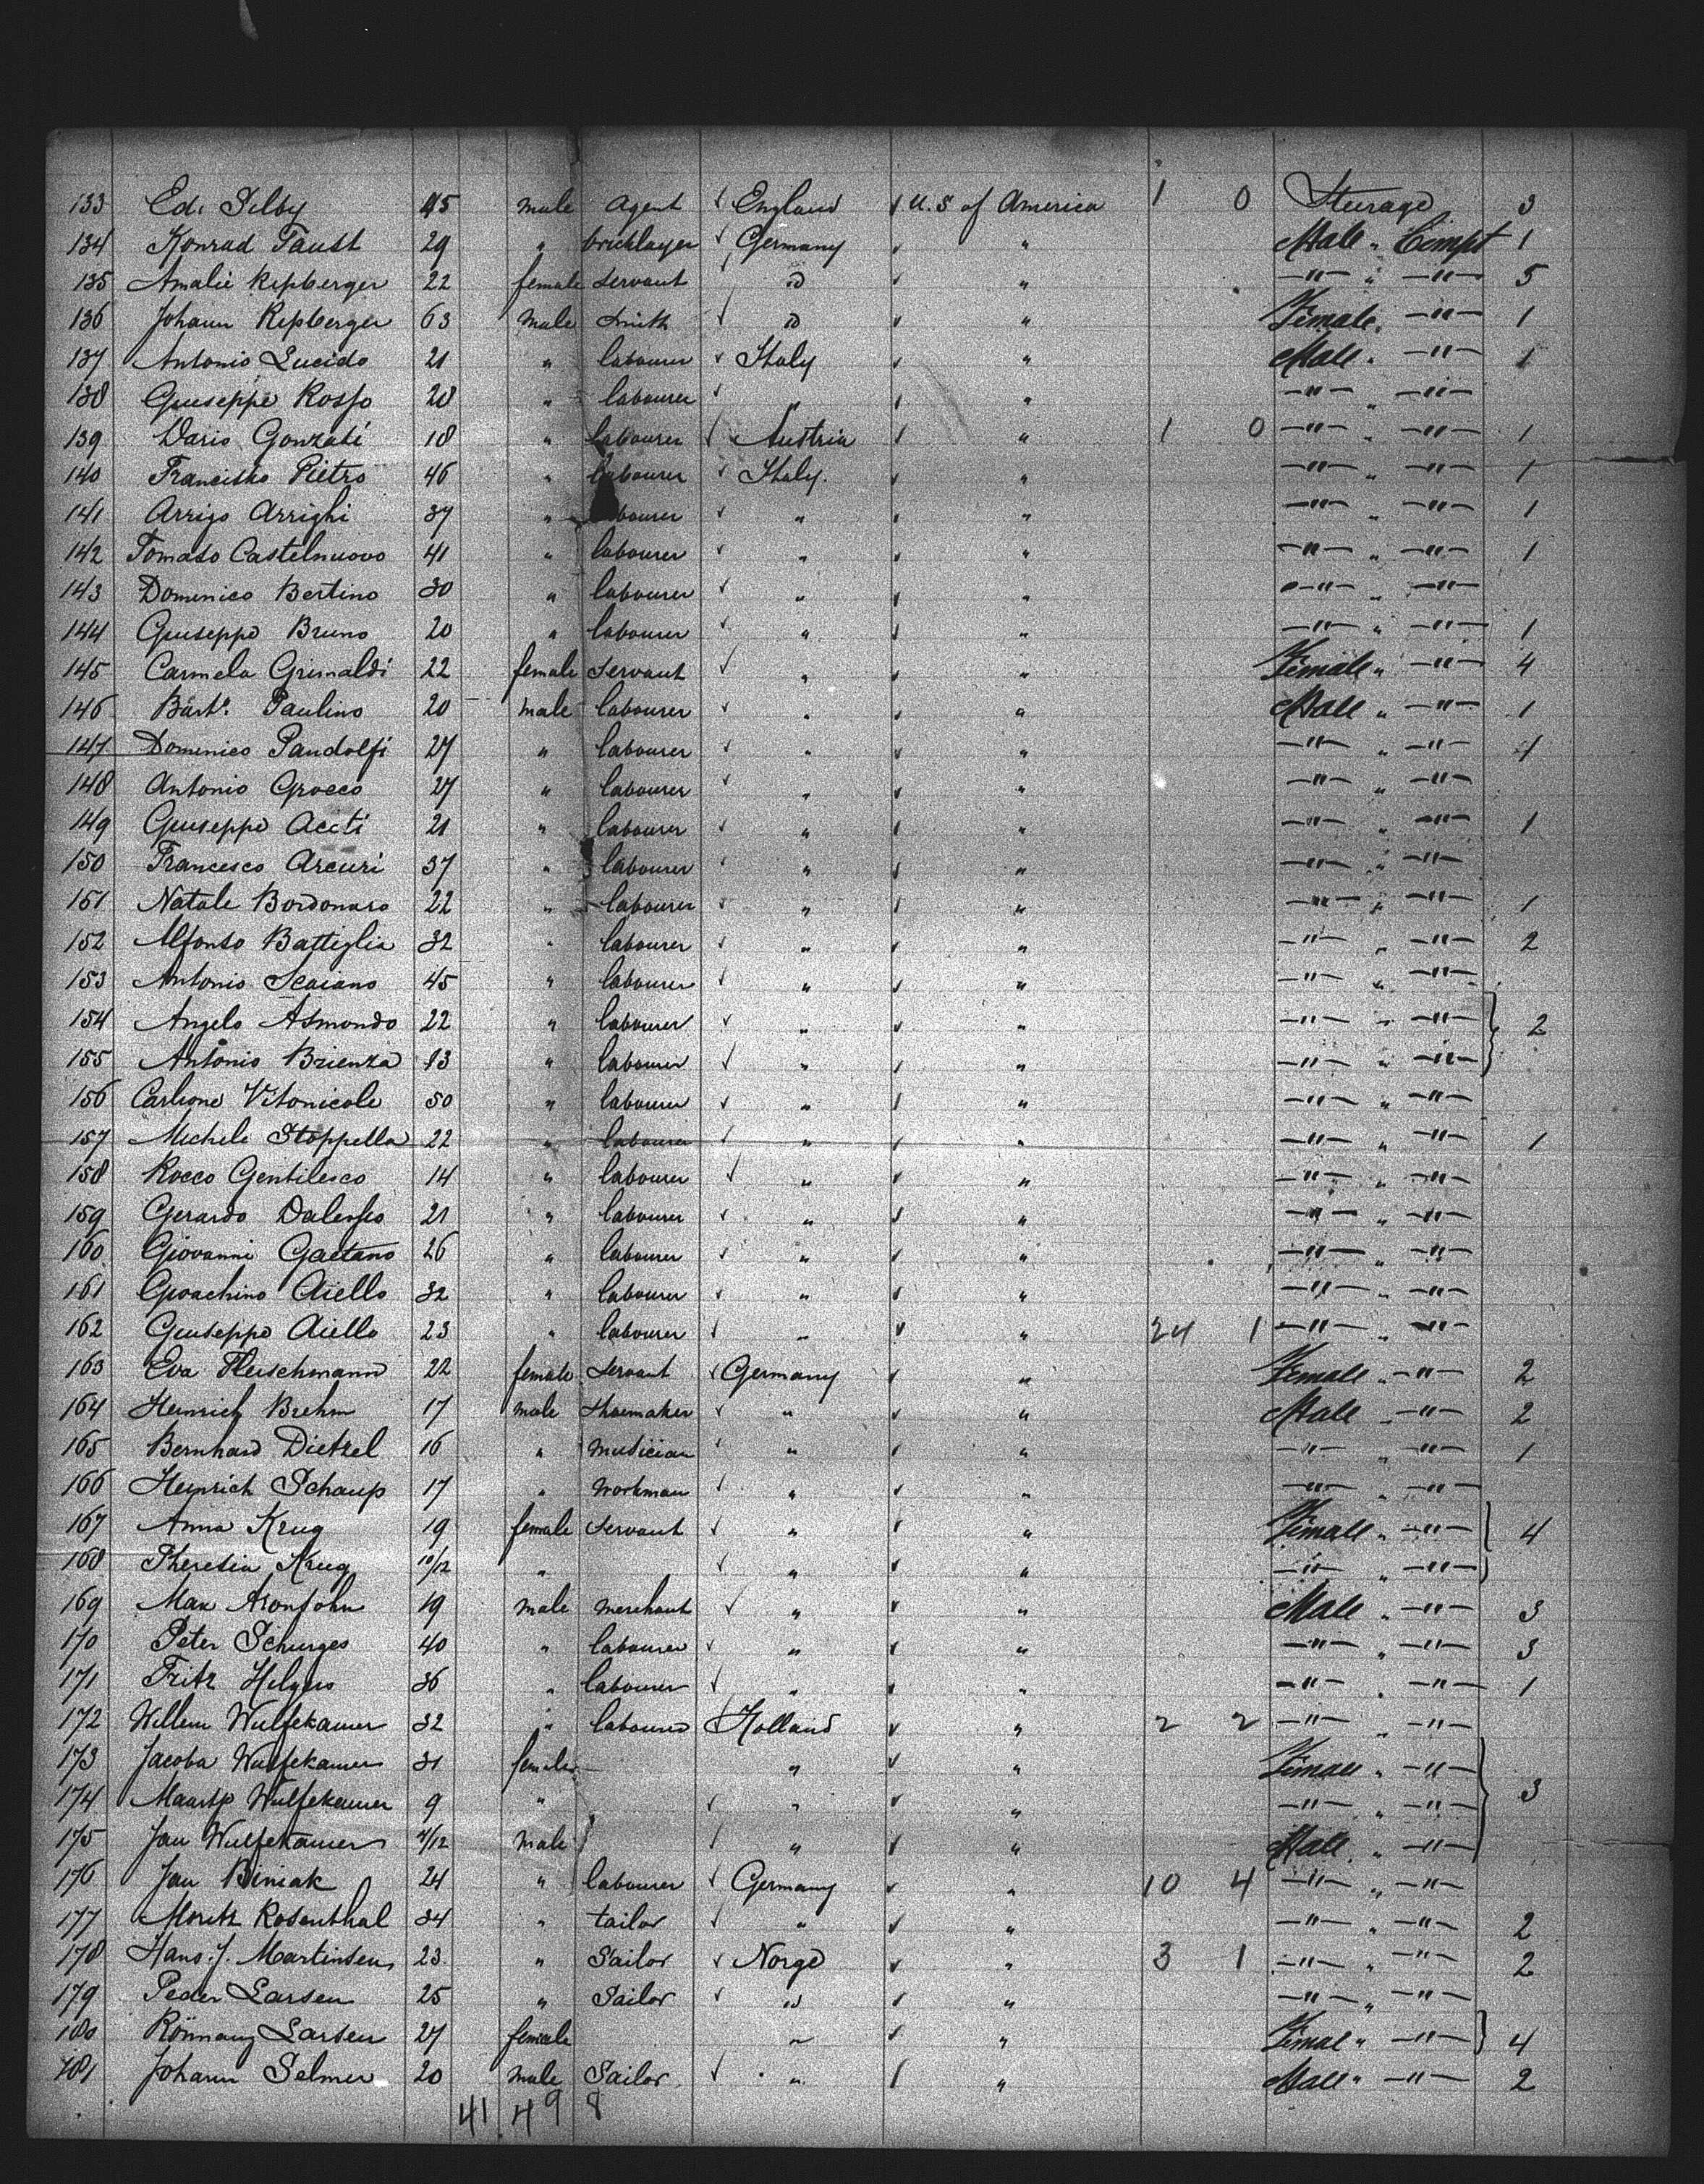 133 Ed. Silby 45 male agent √ England √ U.S of America 1 0 Steerage 3
134 Konrad Faust 29 " bricklayer √ Germany √ " Male " Compt 1
135 Amalie Repberger 22 female servant √ do √ " —"— " —"— 5
136 Johann Repberger 63 male smith √ do √ " Female " —"— 1
137 Antonio Lucido 21 " labourer √ Italy √ " Male " —"— 1
138 Giuseppe Rosso 28 " labourer √ " √ " —"— " —"—
139 Dario Gonzati 18 " labourer √ Austria √ " 1 0 —"— " —"— 1
140 Francisko Pietro 46 " labourer √ Italy. √ " —"— " —"— 1
141 Arrigo Arrighi 37 " labourer √ " √ " —"— " —"— 1
142 Tomaso Castelnuovo 41 " labourer √ " √ " —"— " —"— 1
143 Domenico Bertino 30 " labourer √ " √ " —"— " —"—
144 Giuseppe Bruno 20 " labourer √ " √ " —"— " —"— 1
145 Carmela Grimaldi 22 female servant √ " √ " Female " —"— 4
146 Barto. Paulino 20 male labourer √ " √ " Male " —"— 1
147 Domenico Pandolfi 27 " labourer √ " √ " —"— " —"— 1
148 Antonio Grocco 27 " labourer √ " √ " —"— " —"—
149 Giuseppe Aceti 21 " labourer √ " √ " —"— " —"— 1
150 Francesco Arcuri 37 " labourer √ " √ " —"— " —"—
151 Natale Bordonaro 22 " labourer √ " √ " —"— " —"— 1
152 Alfonso Battiglia 32 " labourer √ " √ " —"— " —"— 2
153 Antonio Scaiano 45 " labourer √ " √ " —"— " —"—
154 Angelo Asmondo 22 " labourer √ " √ " —"— " —"— 2
155 Antonio Brienza 13 " labourer √ " √ " —"— " —"—
156 Carlione Vitonicole 50 " labourer √ " √ " —"— " —"—
157 Michele Stoppella 22 " labourer √ " √ " —"— " —"— 1
158 Rocco Gentilesco 14 " labourer √ " √ " —"— " —"—
159 Gerardo Dalessio 21 " labourer √ " √ " —"— " —"—
160 Giovanni Gaetano 26 " labourer √ " √ " —"— " —"—
161 Gioachino Aiello 32 " labourer √ " √ " —"— " —"—
162 Giuseppe Aiello 23 " labourer √ " √ " 24 1 —"— " —"—
163 Eva Fleischmann 22 female servant √ Germany √ " Female " —"— 2
164 Heinrich Brehm 17 male shoemaker √ " √ " Male " —"— 2
165 Bernhard Dietzel 16 " musician √ " √ " —"— " —"— 1
166 Heinrich Schaup 17 " workman √ " √ " —"— " —"—
167 Anna Krug 19 female servant √ " √ " Female " —"— 4
168 Theresia Krug 10/12 " √ " √ " —"— " —"—
169 Max Aronsohn 19 male merchant √ " √ " Male " —"— 3
170 Peter Schurges 40 " labourer √ " √ " —"— " —"— 3
171 Fritz Hilgers 36 " labourer √ " √ " —"— " —"— 1
172 Willem Wulfekamer 32 " labourer √ Holland √ " 2 2 —"— " —"—
173 Jacoba Wulfekamer 31 female " √ " Female " —"— 3
174 Wulfekamer 9 " √ " √ " —"— " —"—
175 Jan Wulfekamer /12 male √ " √ " Male " —"—
176 Jan Biniak 24 " labourer √ Germany √ " 10 4 —"— " —"—
177 Moritz Rosenthal 34 " tailor √ " √ " —"— " —"— 2
178 Hans. J. Martinsen 23 " Sailor √ Norge √ " 3 1 —"— " —"— 2
179 Peder Larsen 25 " Sailor √ do √ " —"— " —"—
180 Larsen 27 female " √ " Femal " —"— 4
181 Johann Selmer 20 male Sailor √ " √ " Male " —"— 2
41 49 8